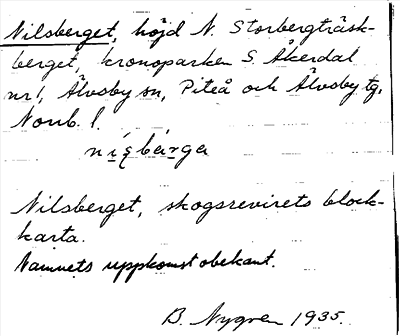 Nilsberget, höjd N. Storbergträsk-
berget, kronoparken S. Åkerdal
nr 1, Älvsby sn, Piteå och Älvsby tg,
Norrb. l.
Nilsberget, skogsrevirets block-
karta.
Namnets uppkomst obekant.
B. Nygren 1935.